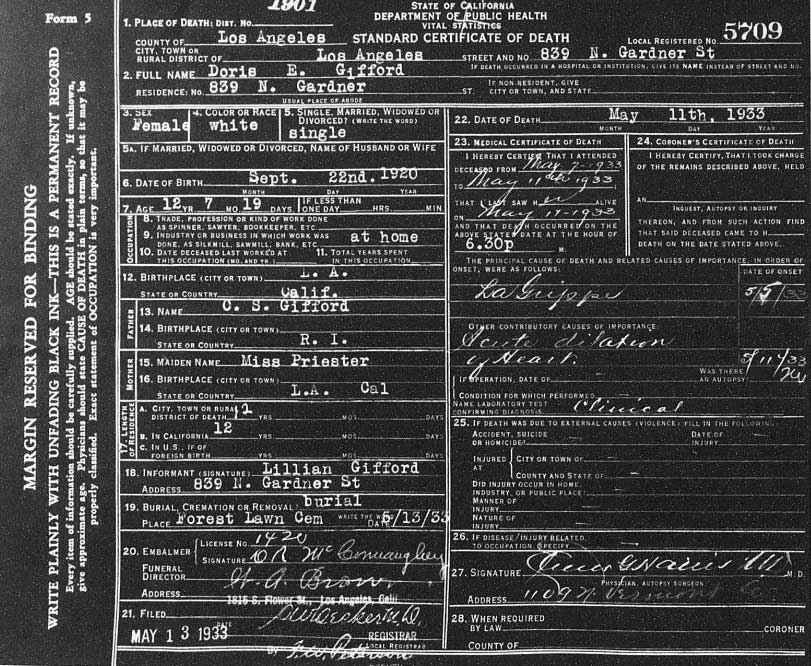 1901
Form 5
STATE OF CALIFORNIA
DEPARTMENT OF PUBLIC HEALTH
VITAL STATISTICS
STANDARD CERTIFICATE OF DEATH
1. PLACE OF DEATH: DIST. NO.
LOCAL REGISTERED NO. 5709
COUNTY OF Los Angeles
CITY, TOWN OR
RURAL DISTRICT OF Los Angeles STREET AND NO. 839 N. Gardner St
IF DEATH OCCURRED IN A HOSPITAL OR INSTITUTION, GIVE ITS NAME INSTEAD OF STREET AND NO.
2. FULL NAME Doris E. Gifford
RESIDENCE: NO. 839 N. Gardner ST.
IF NON-RESIDENT, GIVE
CITY OR TOWN, AND STATE
USUAL PLACE OF ABODE
MARGIN RESERVED FOR BINDING
WRITE PLAINLY WITH UNFADING BLACK INK—THIS IS A PERMANENT RECORD
Every item of information should be carefully supplied. AGE should be stated exactly. If unknown,
give approximate age. Physicians should state CAUSE OF DEATH in plain terms, so that it may be
properly classified. Exact statement of OCCUPATION is very important.
3. SEX Female
4. COLOR OR RACE white
5. SINGLE, MARRIED, WIDOWED OR
DIVORCED? (WRITE THE WORD)
single
5A. IF MARRIED, WIDOWED OR DIVORCED, NAME OF HUSBAND OR WIFE
6. DATE OF BIRTH Sept. 22nd. 1920
MONTH DAY YEAR
7. AGE 12 YR 7 MO 19 DAYS IF LESS THAN ONE DAY HRS. MIN
OCCUPATION
8. TRADE, PROFESSION OR KIND OF WORK DONE
AS SPINNER, SAWYER, BOOKKEEPER, ETC.
9. INDUSTRY OR BUSINESS IN WHICH WORK WAS
DONE, AS SILKMILL, SAWMILL, BANK, ETC. at home
10. DATE DECEASED LAST WORKED AT
THIS OCCUPATION (MO. AND YR.)
11. TOTAL YEARS SPENT
IN THIS OCCUPATION
12. BIRTHPLACE (CITY OR TOWN) L. A.
STATE OR COUNTRY Calif.
FATHER
13. NAME C. S. Gifford
14. BIRTHPLACE (CITY OR TOWN)
STATE OR COUNTRY R. I.
MOTHER
15. MAIDEN NAME Miss Priester
16. BIRTHPLACE (CITY OR TOWN)
STATE OR COUNTRY L.A. Cal
17. LENGTH OF RESIDENCE
A. CITY, TOWN OR RURAL
DISTRICT OF DEATH 12 YRS MOS DAYS
B. IN CALIFORNIA 12 YRS MOS DAYS
C. IN U.S., IF OF
FOREIGN BIRTH YRS MOS DAYS
18. INFORMANT (SIGNATURE) Lillian Gifford
ADDRESS 839 N. Gardner St
19. BURIAL, CREMATION OR REMOVAL? burial
PLACE Forest Lawn Cem WRITE THE WORD DATE 5/13/33
20. EMBALMER LICENSE NO. 1420
SIGNATURE
FUNERAL
DIRECTOR W. A. Brown
ADDRESS 1815 S. Flower St., Los Angeles, Calif
21. FILED MAY 13 1933 DATE
REGISTRAR
LOCAL REGISTRAR
BY F.W. Peterson
22. DATE OF DEATH May 11th, 1933
MONTH DAY YEAR
23. MEDICAL CERTIFICATE OF DEATH
I HEREBY CERTIFY, THAT I ATTENDED
DECEASED FROM May 7-1933
TO May 11th 1933
THAT I LAST SAW H ALIVE
ON May 11-1933
AND THAT DEATH OCCURRED ON THE
ABOVE STATED DATE AT THE HOUR OF
6.30p M.
24. CORONER'S CERTIFICATE OF DEATH
I HEREBY CERTIFY, THAT I TOOK CHARGE
OF THE REMAINS DESCRIBED ABOVE, HELD
AN
INQUEST, AUTOPSY OR INQUIRY
THEREON, AND FROM SUCH ACTION FIND
THAT SAID DECEASED CAME TO H
DEATH ON THE DATE STATED ABOVE.
THE PRINCIPAL CAUSE OF DEATH AND RELATED CAUSES OF IMPORTANCE, IN ORDER OF
ONSET, WERE AS FOLLOWS:
DATE OF ONSET
La Grippe 5/5/33
OTHER CONTRIBUTORY CAUSES OF IMPORTANCE:
Acute dilation
of Heart. 5/11/33
IF OPERATION, DATE OF
WAS THERE
AN AUTOPSY? No
CONDITION FOR WHICH PERFORMED
NAME LABORATORY TEST
CONFIRMING DIAGNOSIS Clinical
25. IF DEATH WAS DUE TO EXTERNAL CAUSES (VIOLENCE) FILL IN THE FOLLOWING:
ACCIDENT, SUICIDE
OR HOMICIDE?
DATE OF
INJURY
INJURED AT
CITY OR TOWN OF
COUNTY AND STATE OF
DID INJURY OCCUR IN HOME,
INDUSTRY, OR PUBLIC PLACE?
MANNER OF
INJURY
NATURE OF
INJURY
26. IF DISEASE/INJURY RELATED
TO OCCUPATION, SPECIFY
27. SIGNATURE M.D.
PHYSICIAN, AUTOPSY SURGEON
ADDRESS 1109 N. Vermont
28. WHEN REQUIRED
BY LAW CORONER
COUNTY OF